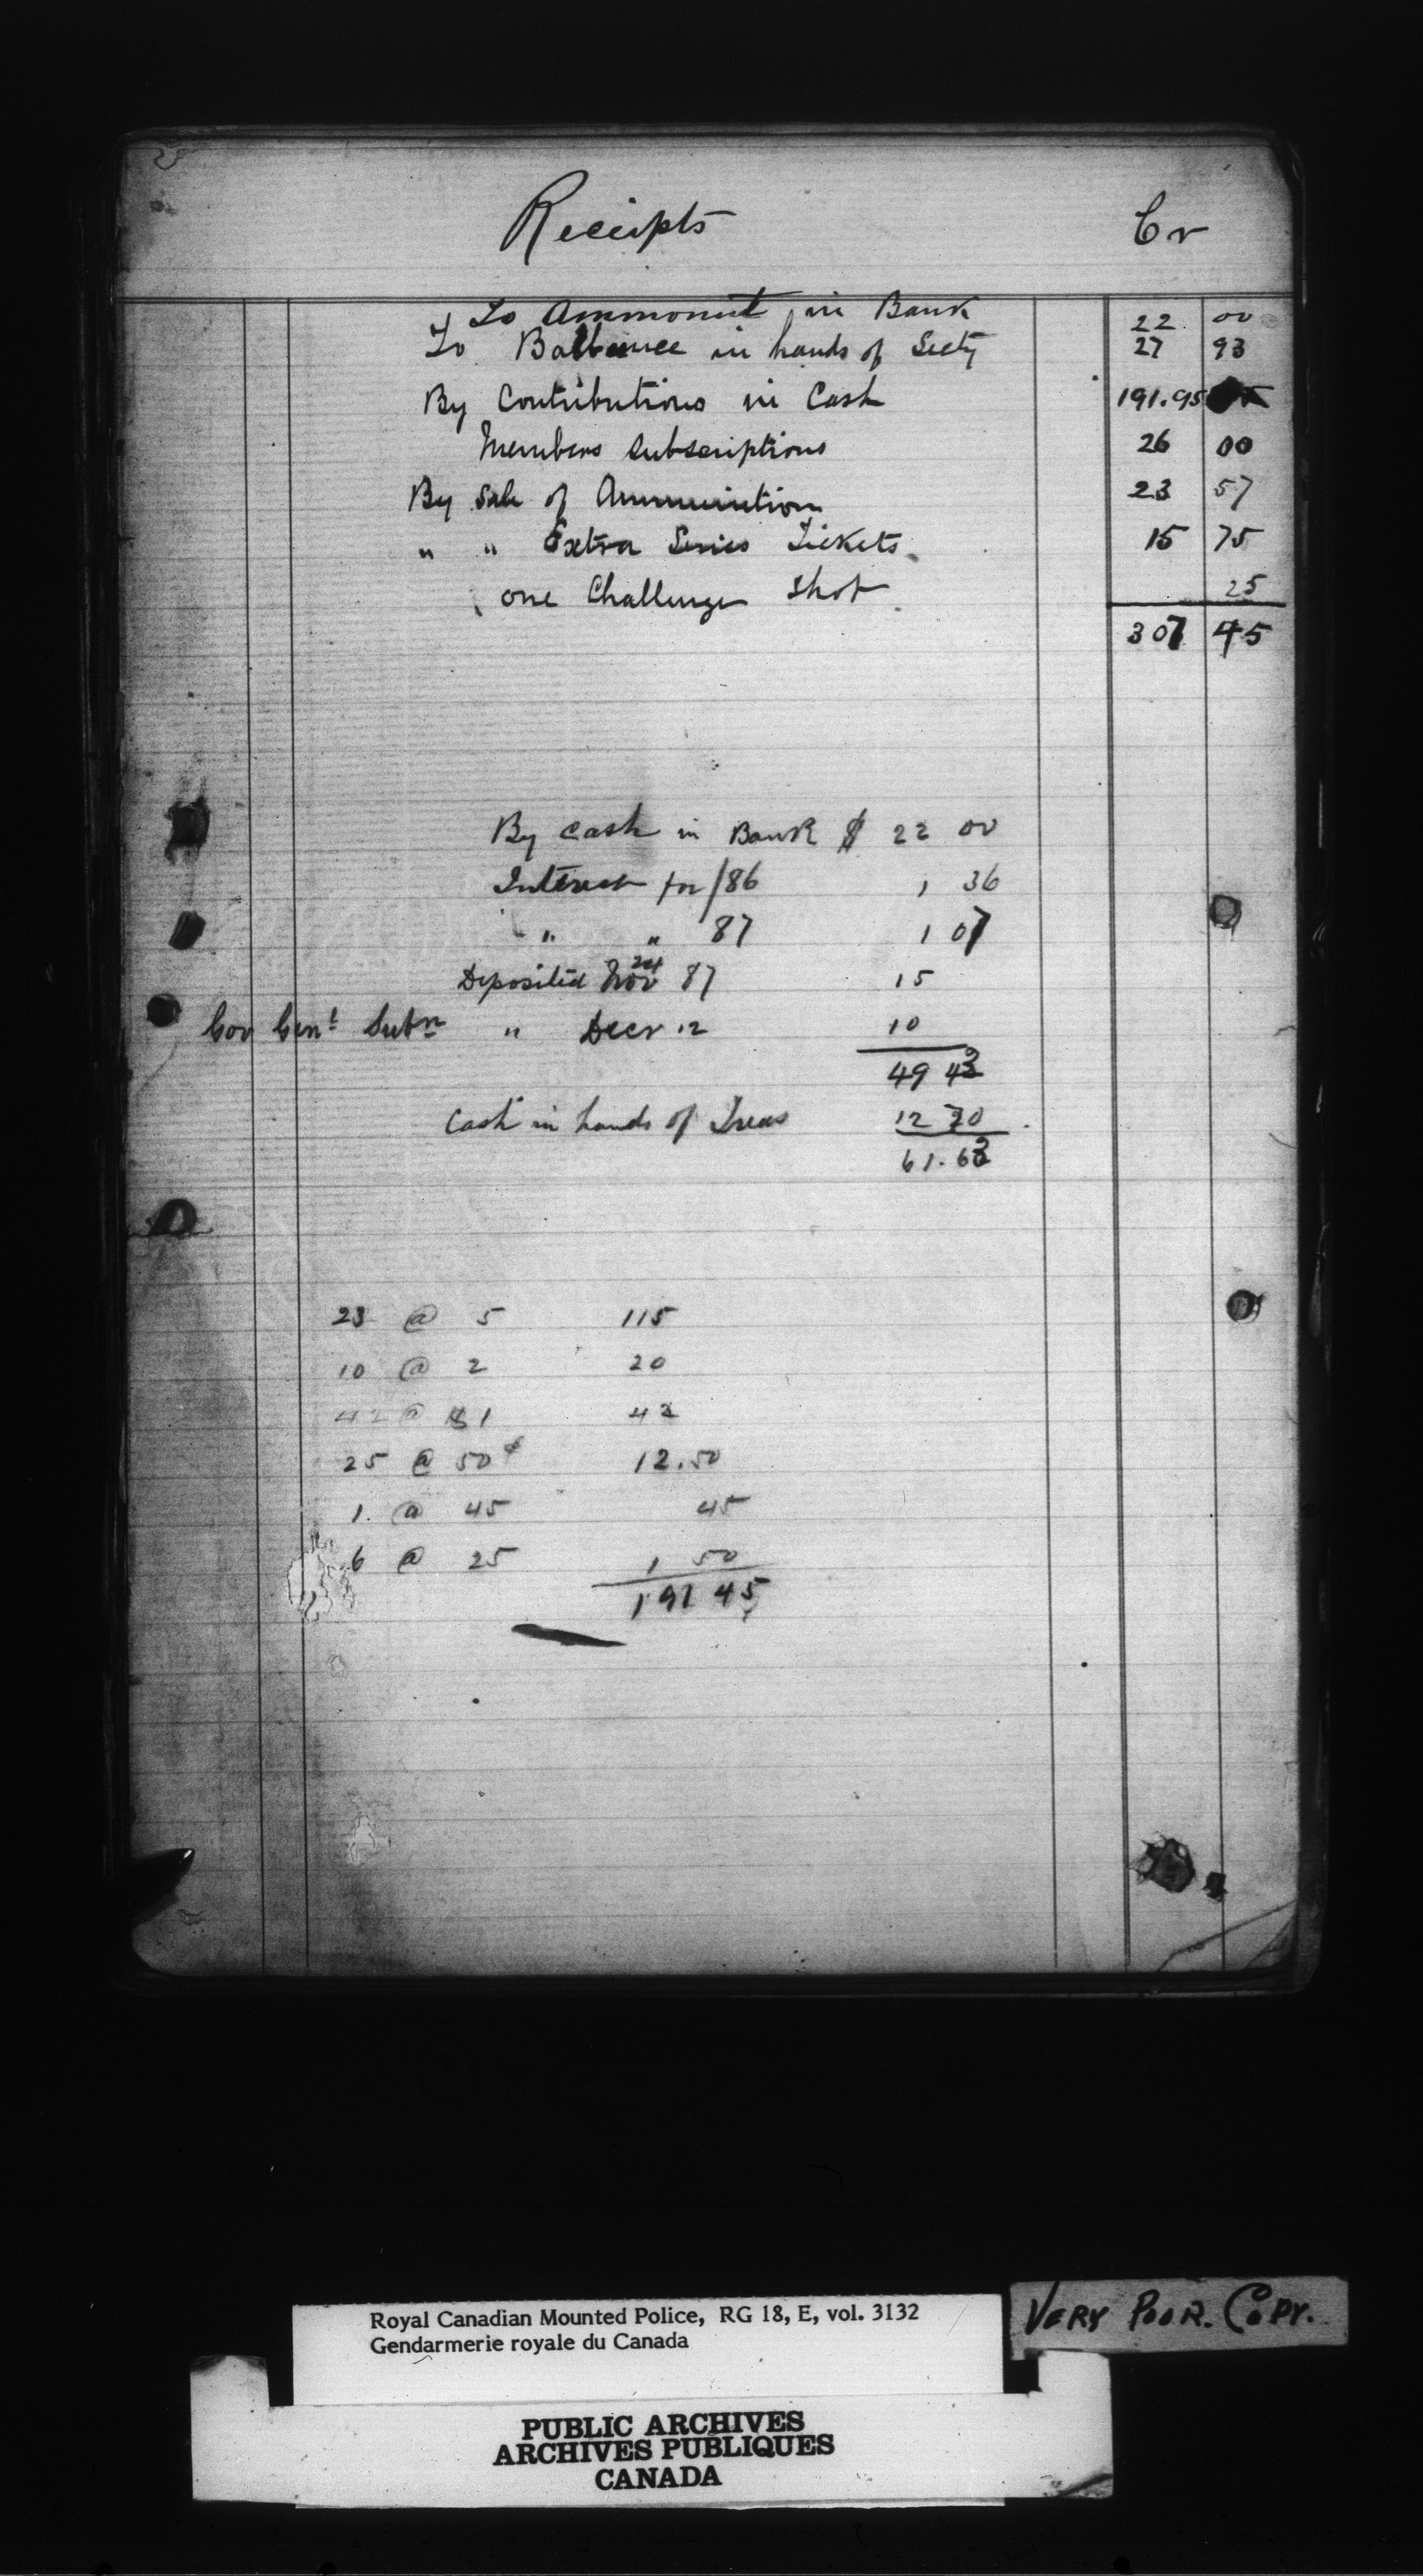 28
Receipts Cr
To Ammount in Bank 22 00
To Ballance in hands of Secty 27 93
By Contributions in Cash 191.95
Members Subscriptions 26 00
By Sale of Ammunition 23 57
" " Extra Series Tickets 15 75
one Challenge Shot 25
307 45
By Cash in Bank $ 22 00
Interest for /86 1 36
" " 87 1 07
Deposited Nov 24 87 15
Gov Genl Subn " Decr 12 10
49 43
Cash in hands of Treas 12 20
61.63
23 @ 5 115
10 @ 2 20
42 @ $1 42
25 @ 50¢ 12.50
1. @ 45 45
6 @ 25 1 50
191 45
Royal Canadian Mounted Police, RG 18, E, vol. 3132
Gendarmerie royale du Canada
VERY POOR. COPY.
PUBLIC ARCHIVES
ARCHIVES PUBLIQUES
CANADA